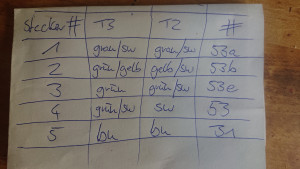 Stecker # T3 T2 #
1 grau/sw grau/sw 53a
2 grün/gelb gelb/sw 53b
3 grün grün/sw 53e
4 grün/sw sw 53
5 br br 31